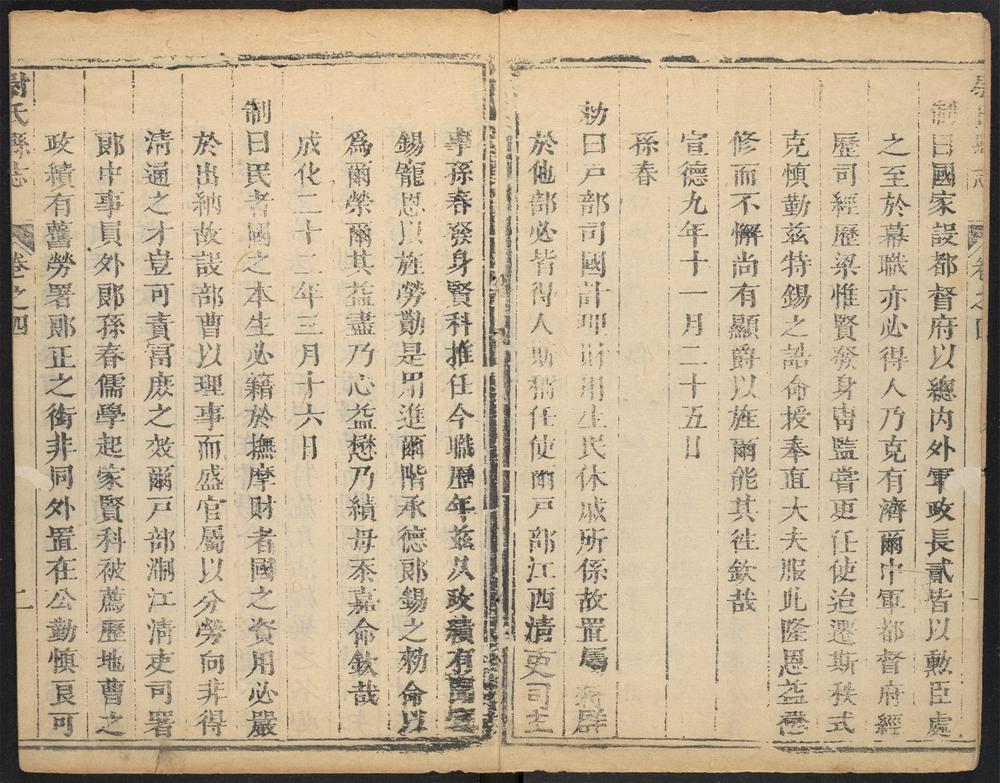 尉氏縣志 卷之四
制曰國家設都督府以總内外軍政長貳皆以勲臣處
之至於幕職亦必得人乃克有濟爾中軍都督府經
歷司經歷梁惟賢發身胄監嘗更任使迨遷斯秩式
克慎勤兹特錫之誥命授奉直大夫服此隆恩益懋
修而不懈尚有顯爵以旌爾能其徃欽哉
宣德九年十一月二十五日
孫春
勑曰戸部司國計理財用生民休戚所係故置屬 辟
於他部必皆得人斯稱任使爾戸部江西清吏司主
事孫春發身賢科推任今職歷年兹以政績有
錫寵恩以旌勞勩是用進爾階承德郎錫之勑命以
爲爾榮爾其益盡乃心益懋乃績毋忝嘉命欽哉
成化二十二年三月十六日
制曰民者國之本生必籍於撫摩財者國之資用必嚴
於出納故設部曹以理事而盛官屬以分勞向非得
清通之才豈可責冨庶之效爾戸部淛江清吏司署
郎中事員外郎孫春儒學起家賢科被薦歷地曹之
政績有舊勞署郎正之銜非同外置在公勤慎良可
尉氏縣志 卷之四 二